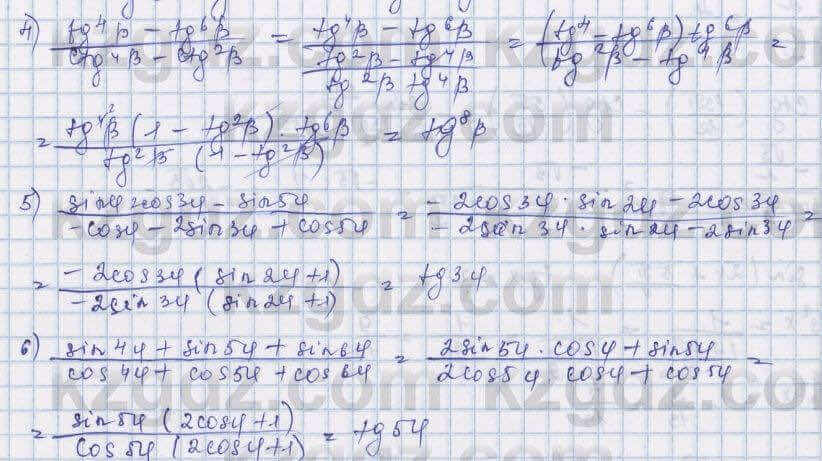 4) (tg⁴β − tg⁶β)/(ctg⁴β − ctg²β) = (tg⁴β − tg⁶β)/((tg²β − tg⁴β)/(tg²β tg⁴β)) = ((tg⁴ − tg⁶β) tg⁶β)/(tg²β − tg⁴β) =
= (tg⁴β (1 − tg²β) · tg⁶β)/(tg²β (1 − tg²β)) = tg⁸β
5) (sin4 2cos34 − sin54)/(−cos4 − 2sin34 + cos54) = (−2cos34 · sin24 − 2cos34)/(−2sin34 · sin24 − 2sin34) =
= (−2cos34 (sin24+1))/(−2sin34 (sin24+1)) = tg34
6) (sin44 + sin54 + sin64)/(cos44 + cos54 + cos64) = (2sin54 · cos4 + sin54)/(2cos54 · cos4 + cos54) =
= (sin54 (2cos4+1))/(cos54 (2cos4+1)) = tg54
kzgdz.com